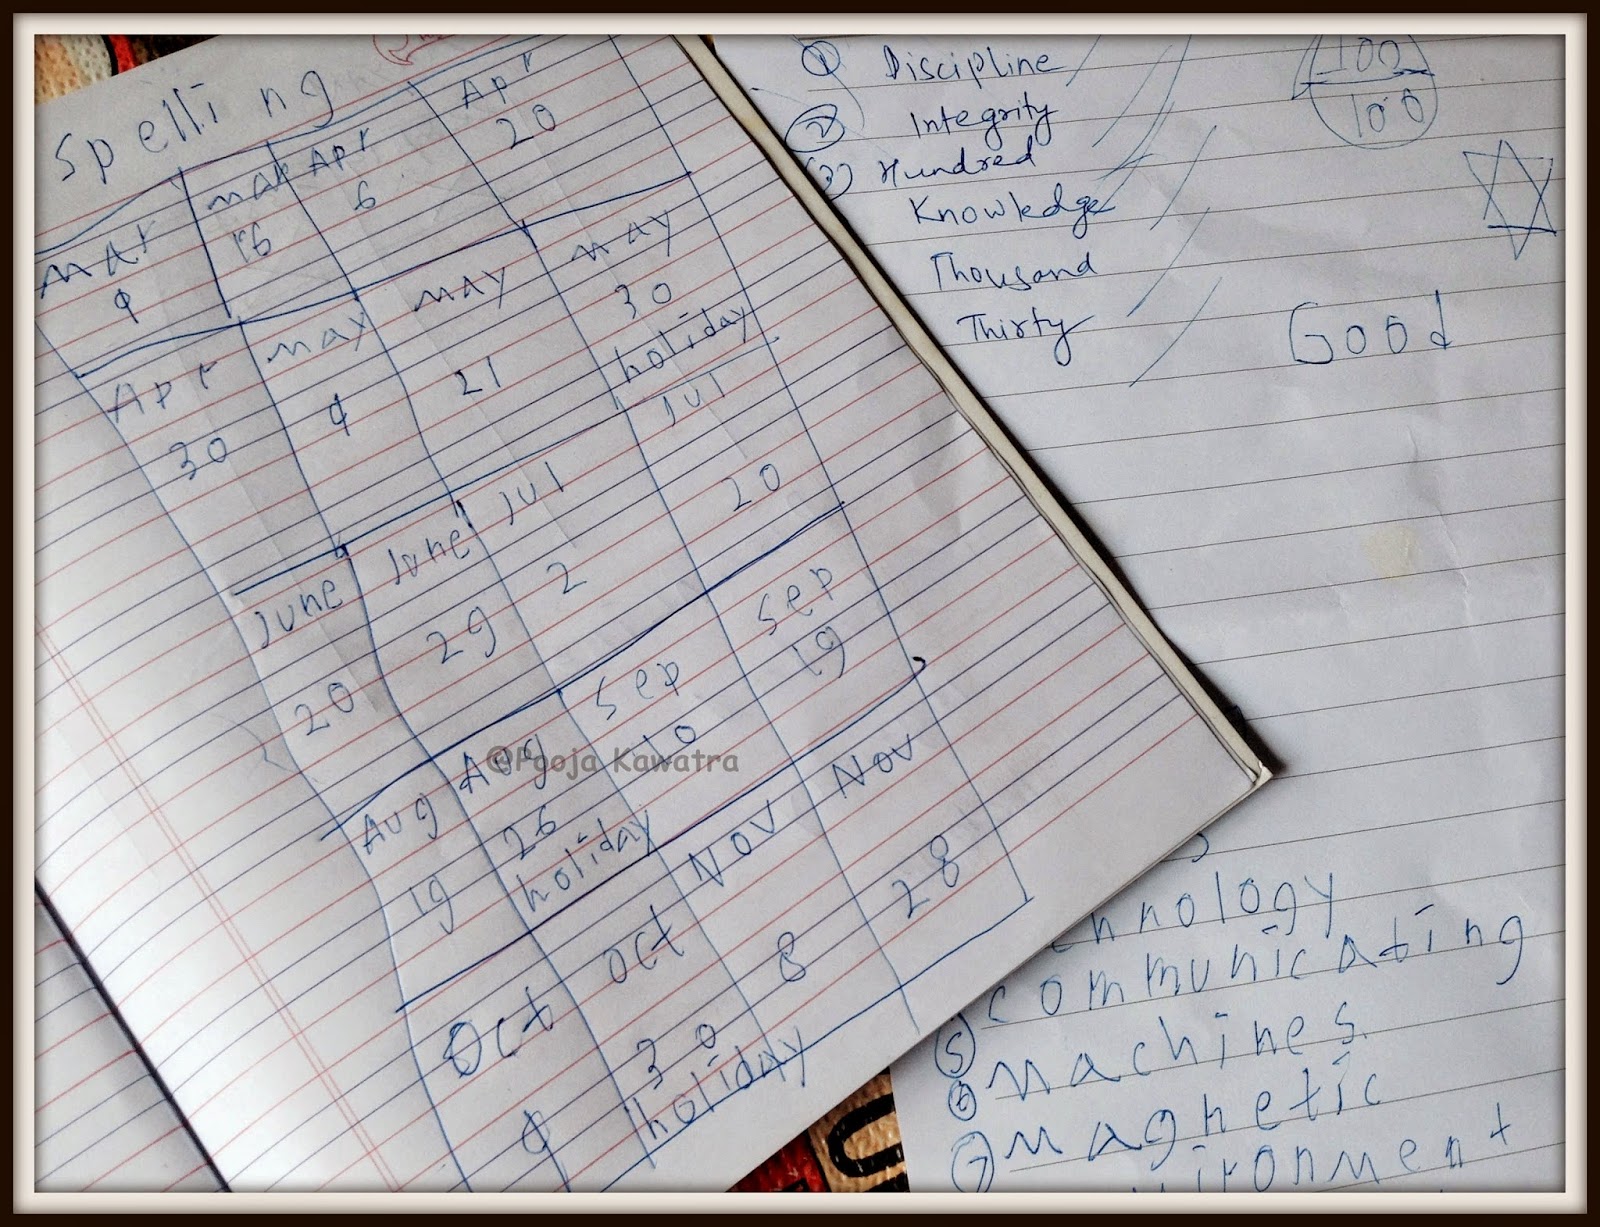 Spelling
Mar Mar Apr Apr
9 16 6 20
Apr May May May
30 9 21 30
holiday
June June Jul Jul
20 29 2 20
Aug Aug Sep Sep
19 26 10 19
holiday
Oct Oct Nov Nov
9 30 8 28
holiday
@Pooja Kawatra
① Discipline
② Integrity
(3) Hundred
Knowledge
Thousand
Thirty
100
100
Good
chnology
communicating
⑤ machines
⑥ magnetic
⑦ ironment